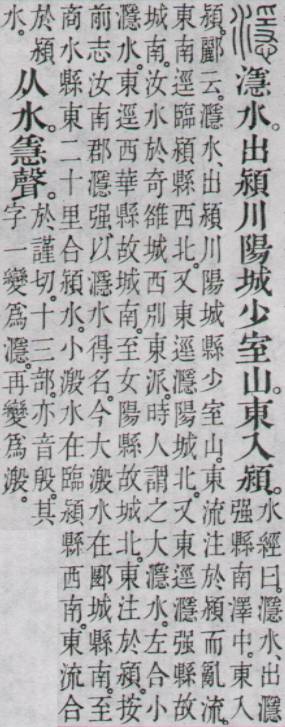 㶏水。出潁川陽城少室山。東入潁。
水經曰。濦水、出濦
强縣南澤中。東入
潁。酈云。濦水、出潁川陽城縣少室山。東流注於潁而亂流。
東南逕臨潁縣西北。又東逕濦陽城北。又東逕濦强縣故
城南。汝水於奇雒城西別東派。時人謂之大濦水。左合小
濦水。東逕西華縣故城南。至女陽縣故城北。東注於潁。按
前志汝南郡濦强。以濦水得名。今大溵水在郾城縣南。至
商水縣東二十里合潁水。小溵水在臨潁縣西南。東流合
於潁
水。
从水。㥯聲。
於謹切。十三部。亦音殷。其
字一變爲濦。再變爲溵。